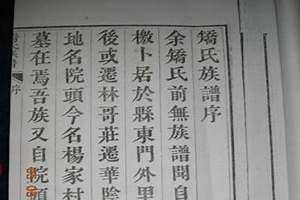 矯氏族譜序
余矯氏前無族譜聞自
檄卜居於縣東門外里
後或遷林哥莊遷華陰
地名院頭今名楊家村
墓在焉吾族又自院頭
序